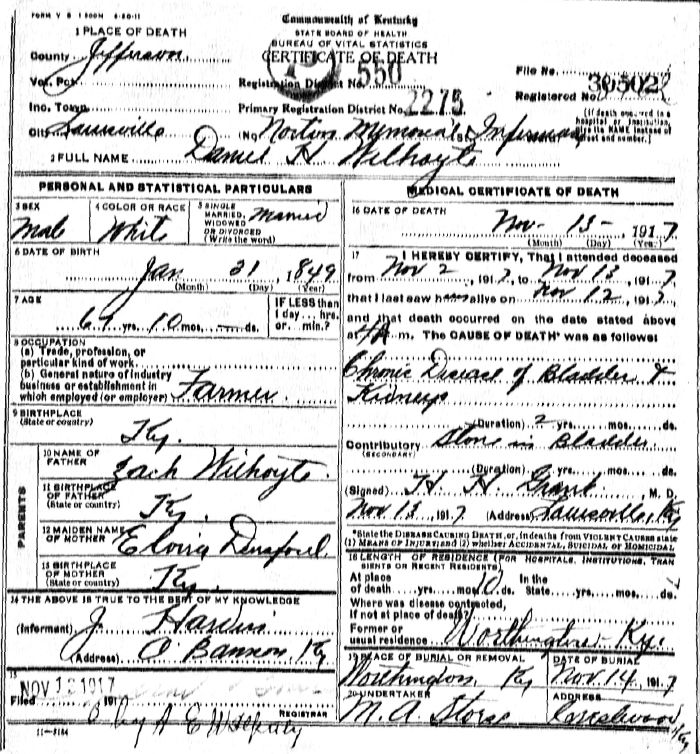 FORM V S 1 500M 6-20-11
Commonwealth of Kentucky
STATE BOARD OF HEALTH
BUREAU OF VITAL STATISTICS
CERTIFICATE OF DEATH
1 PLACE OF DEATH
County Jefferson
Vot. Pct.
Inc. Town
City Louisville
Registration District No. 550
Primary Registration District No. 2275
File No.
Registered No.
(No. Nortons Memorial St. Infirmary
(If death occurred in a hospital or institution, give its NAME instead of street and number.)
2 FULL NAME Daniel H Wilhoyte
PERSONAL AND STATISTICAL PARTICULARS
3 SEX
Male
4 COLOR OR RACE
White
5 SINGLE MARRIED, WIDOWED OR DIVORCED (Write the word)
Married
6 DATE OF BIRTH
Jan 31, 1849
(Month) (Day) (Year)
7 AGE
yrs. 10 mos. ds.
IF LESS than 1 day... hrs. or... min.?
8 OCCUPATION
(a) Trade, profession, or particular kind of work
(b) General nature of industry business or establishment in which employed (or employer) Farmer
9 BIRTHPLACE
(State or country)
Ky.
PARENTS
10 NAME OF FATHER
Zach Wilhoyte
11 BIRTHPLACE OF FATHER
(State or country)
Ky.
12 MAIDEN NAME OF MOTHER
13 BIRTHPLACE OF MOTHER
(State or country)
Ky.
14 THE ABOVE IS TRUE TO THE BEST OF MY KNOWLEDGE
(Informant) J.
(Address) O Bannon, Ky
15
Filed NOV 13 1917, 191
REGISTRAR
11-3184
MEDICAL CERTIFICATE OF DEATH
16 DATE OF DEATH
Nov- 13-, 1917
(Month) (Day) (Year)
17 I HEREBY CERTIFY, That I attended deceased
from Nov 2, 1917, to Nov 13, 1917
that I last saw h alive on Nov 12, 1917
and that death occurred on the date stated above
at m. The CAUSE OF DEATH* was as follows:
Chronic Disease of Bladder &
Kidneys
(Duration) 2 yrs. mos. ds.
Contributory Stone in Bladder
(SECONDARY)
(Duration) yrs. mos. ds.
(Signed) H. H. Grant, M. D.
Nov 13, 1917 (Address) Louisville, Ky
*State the DISEASE CAUSING DEATH, or, in deaths from VIOLENT CAUSES state (1) MEANS OF INJURY; and (2) whether ACCIDENTAL, SUICIDAL or HOMICIDAL
18 LENGTH OF RESIDENCE (FOR HOSPITALS, INSTITUTIONS, TRANSIENTS OR RECENT RESIDENTS)
At place of death yrs. mos. 10 ds. In the State yrs. mos. ds.
Where was disease contracted, If not at place of death?
Former or usual residence Worthington Ky.
19 PLACE OF BURIAL OR REMOVAL
Worthington, Ky
DATE OF BURIAL
Nov. 14, 1917
20 UNDERTAKER
M. A. Stoss
ADDRESS
Crestwood Ky